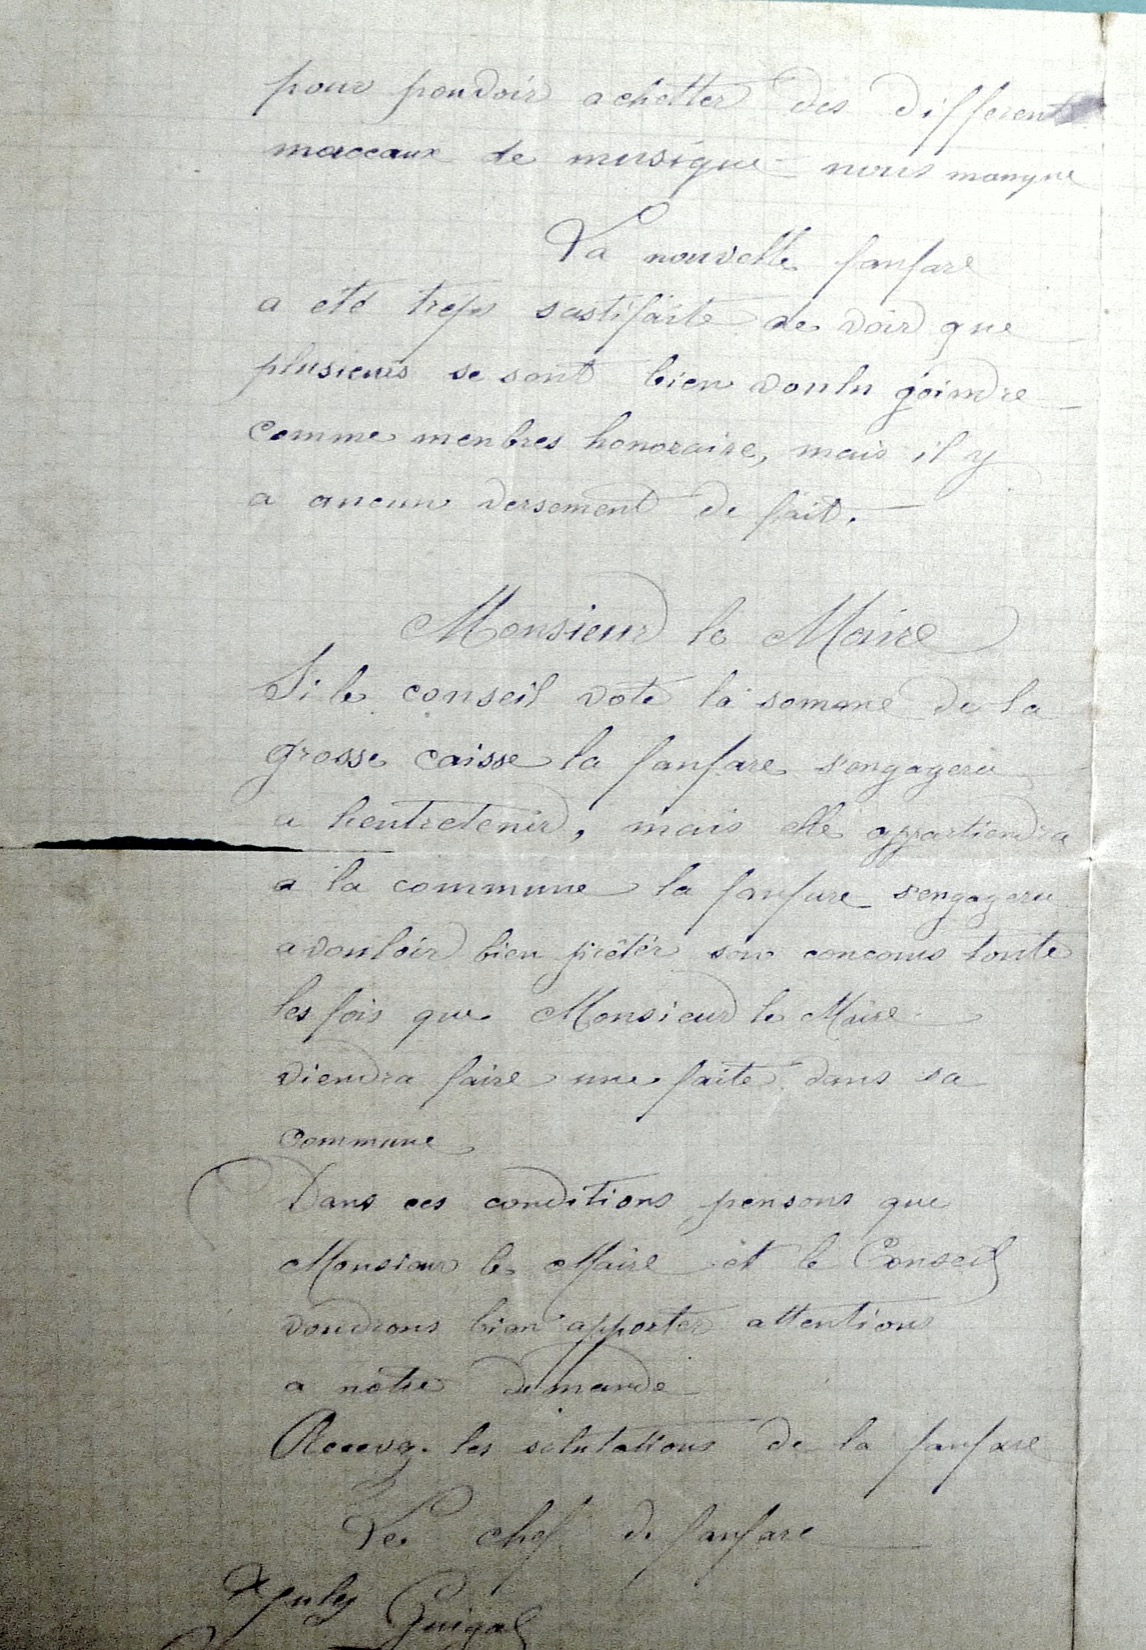 pour pouvoir achetter des different
morceaux de musique nous manque
La nouvelle fanfare
a été treps sastifaite de voir que
plusieurs se sont bien voulu joindre
comme menbres honoraire, mais il y
a aucun versement de fait.
Monsieur le Maire
Si le conseil vote la somme de la
grosse caisse la fanfare s'engagera
a lentretenir, mais elle appartiendra
a la commune la fanfare s'engagera
a vouloir bien prêter son concours toute
les fois que Monsieur le Maire
viendra faire une faite dans sa
commune
Dans ces conditions pensons que
Monsieur le Maire et le Conseil
voudrons bien apporter attentions
a notre demande
Recevez les salutations de la fanfare
Le chef de fanfare
Guigal